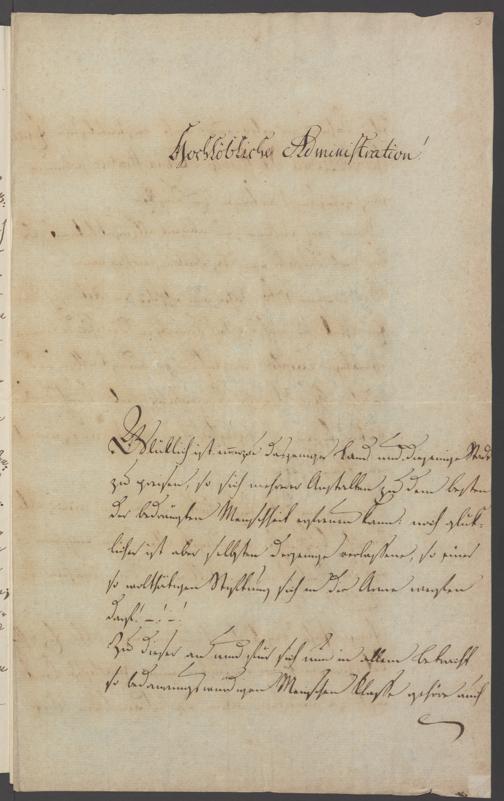 3
Hochlöbliche Administration!
Glüklich ist immer dasjenige Land und diejenige Stadt
zu preisen, so sich mehrerer Anstalten zu dem besten
der bedrängten Menschheit erfreuen kann: noch glük-
licher ist aber selbsten derjenige verlassene, so einer
so wolthätigen Stiftung sich in die Arme werfen
darf! –! –!
Zu dieser an und für sich nun in allem betracht
so bedaurungswürdigen Menschen Klasse gehöre auch